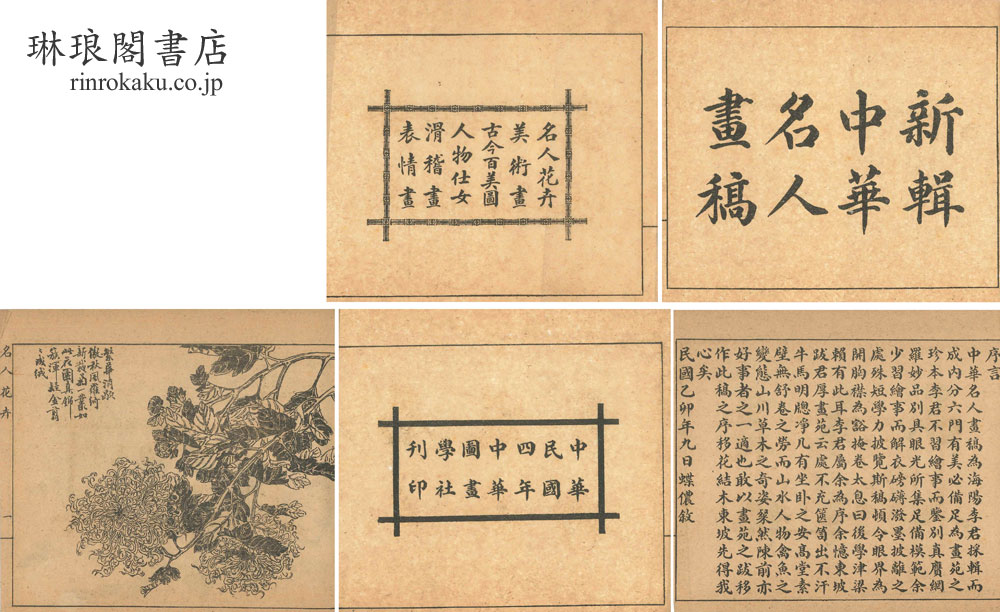 琳琅閣書店
rinrokaku.co.jp
名人花卉
美術畫
古今百美圖
人物仕女
滑稽畫
表情畫
新輯
中華
名人
畫稿
名人花卉
一
繁華消歇
傲秋風羅綺
中華
民國
四年
中華
圖畫
學社
刊印
序言
中華名人畫稿為海陽李君採輯而
成內分六門有美必備足為畫苑之
珍本李君不習繪事而鑒別真贋網
羅妙品別具眼光所集足備模範余
少習繪事而解衣磅礴潑墨披離之
處殊短學力披覽斯稿頓令眼界為
開胸襟為豁掩卷太息曰後學津梁
賴有此耳李君屬余為序余憶東坡
跋君厚畫苑云處不充篋笥出不汗
牛馬明牕凈几有坐臥之安高堂素
壁無舒卷之勞而山水人物禽魚之
變態山川草木之奇姿粲然陳前亦
好事者之一適也敢以畫苑之跋移
作此稿之序移花結木東坡先得我
心矣
民國乙卯年九日蝶儂敘